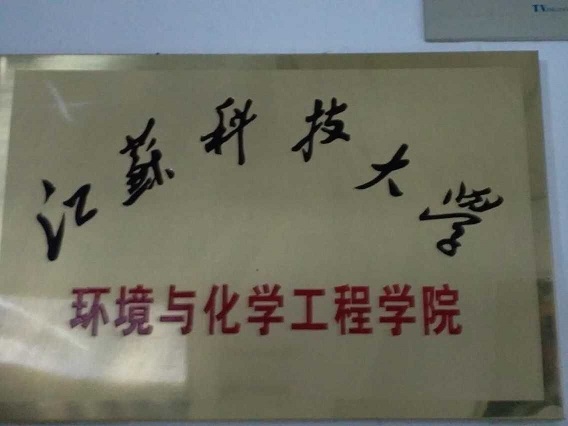 江蘇科技大学
环境与化学工程学院